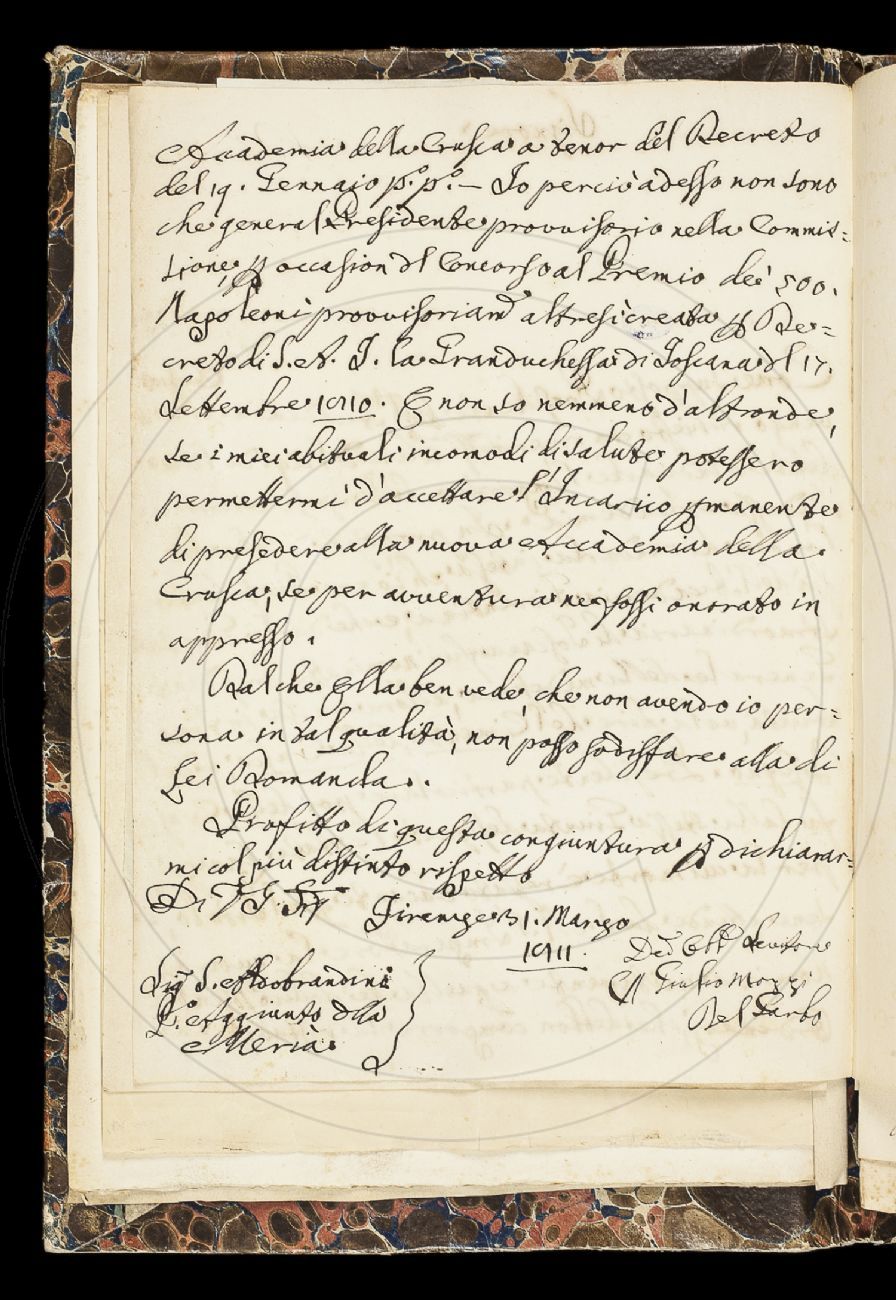 Accademia della Crusca a tenor del Decreto
del 19. Gennajo p.° p.° — Io perciò adesso non sono
che general Presidente provvisorio nella Commis=
sione p occasion dl Concorso al Premio dei 500.
Napoleoni provvisoriam.e altresì creata p De=
creto di S. A. I. la Granduchessa di Toscana dl 17.
Settembre 1810. E non so nemmeno d'altronde,
se i miei abituali incomodi di salute potessero
permettermi d'accettare l'Incarico pmanente
di presedere alla nuova Accademia della
Crusca, se per avventura ne fossi onorato in
appresso.
Dal che Ella ben vede, che non avendo io per=
sona in tal qualità, non posso sodisfare alla di
Lei Domanda.
Profitto di questa congiuntura p dichiarar=
mi col più distinto rispetto
Di V. S.
Firenze 31. Marzo
1811.
Dev. Obb. Servitore
Giulio Mozzi
Del Garbo
Sig. S. Aldobrandini
P.° Aggiunto dlla
Merìa